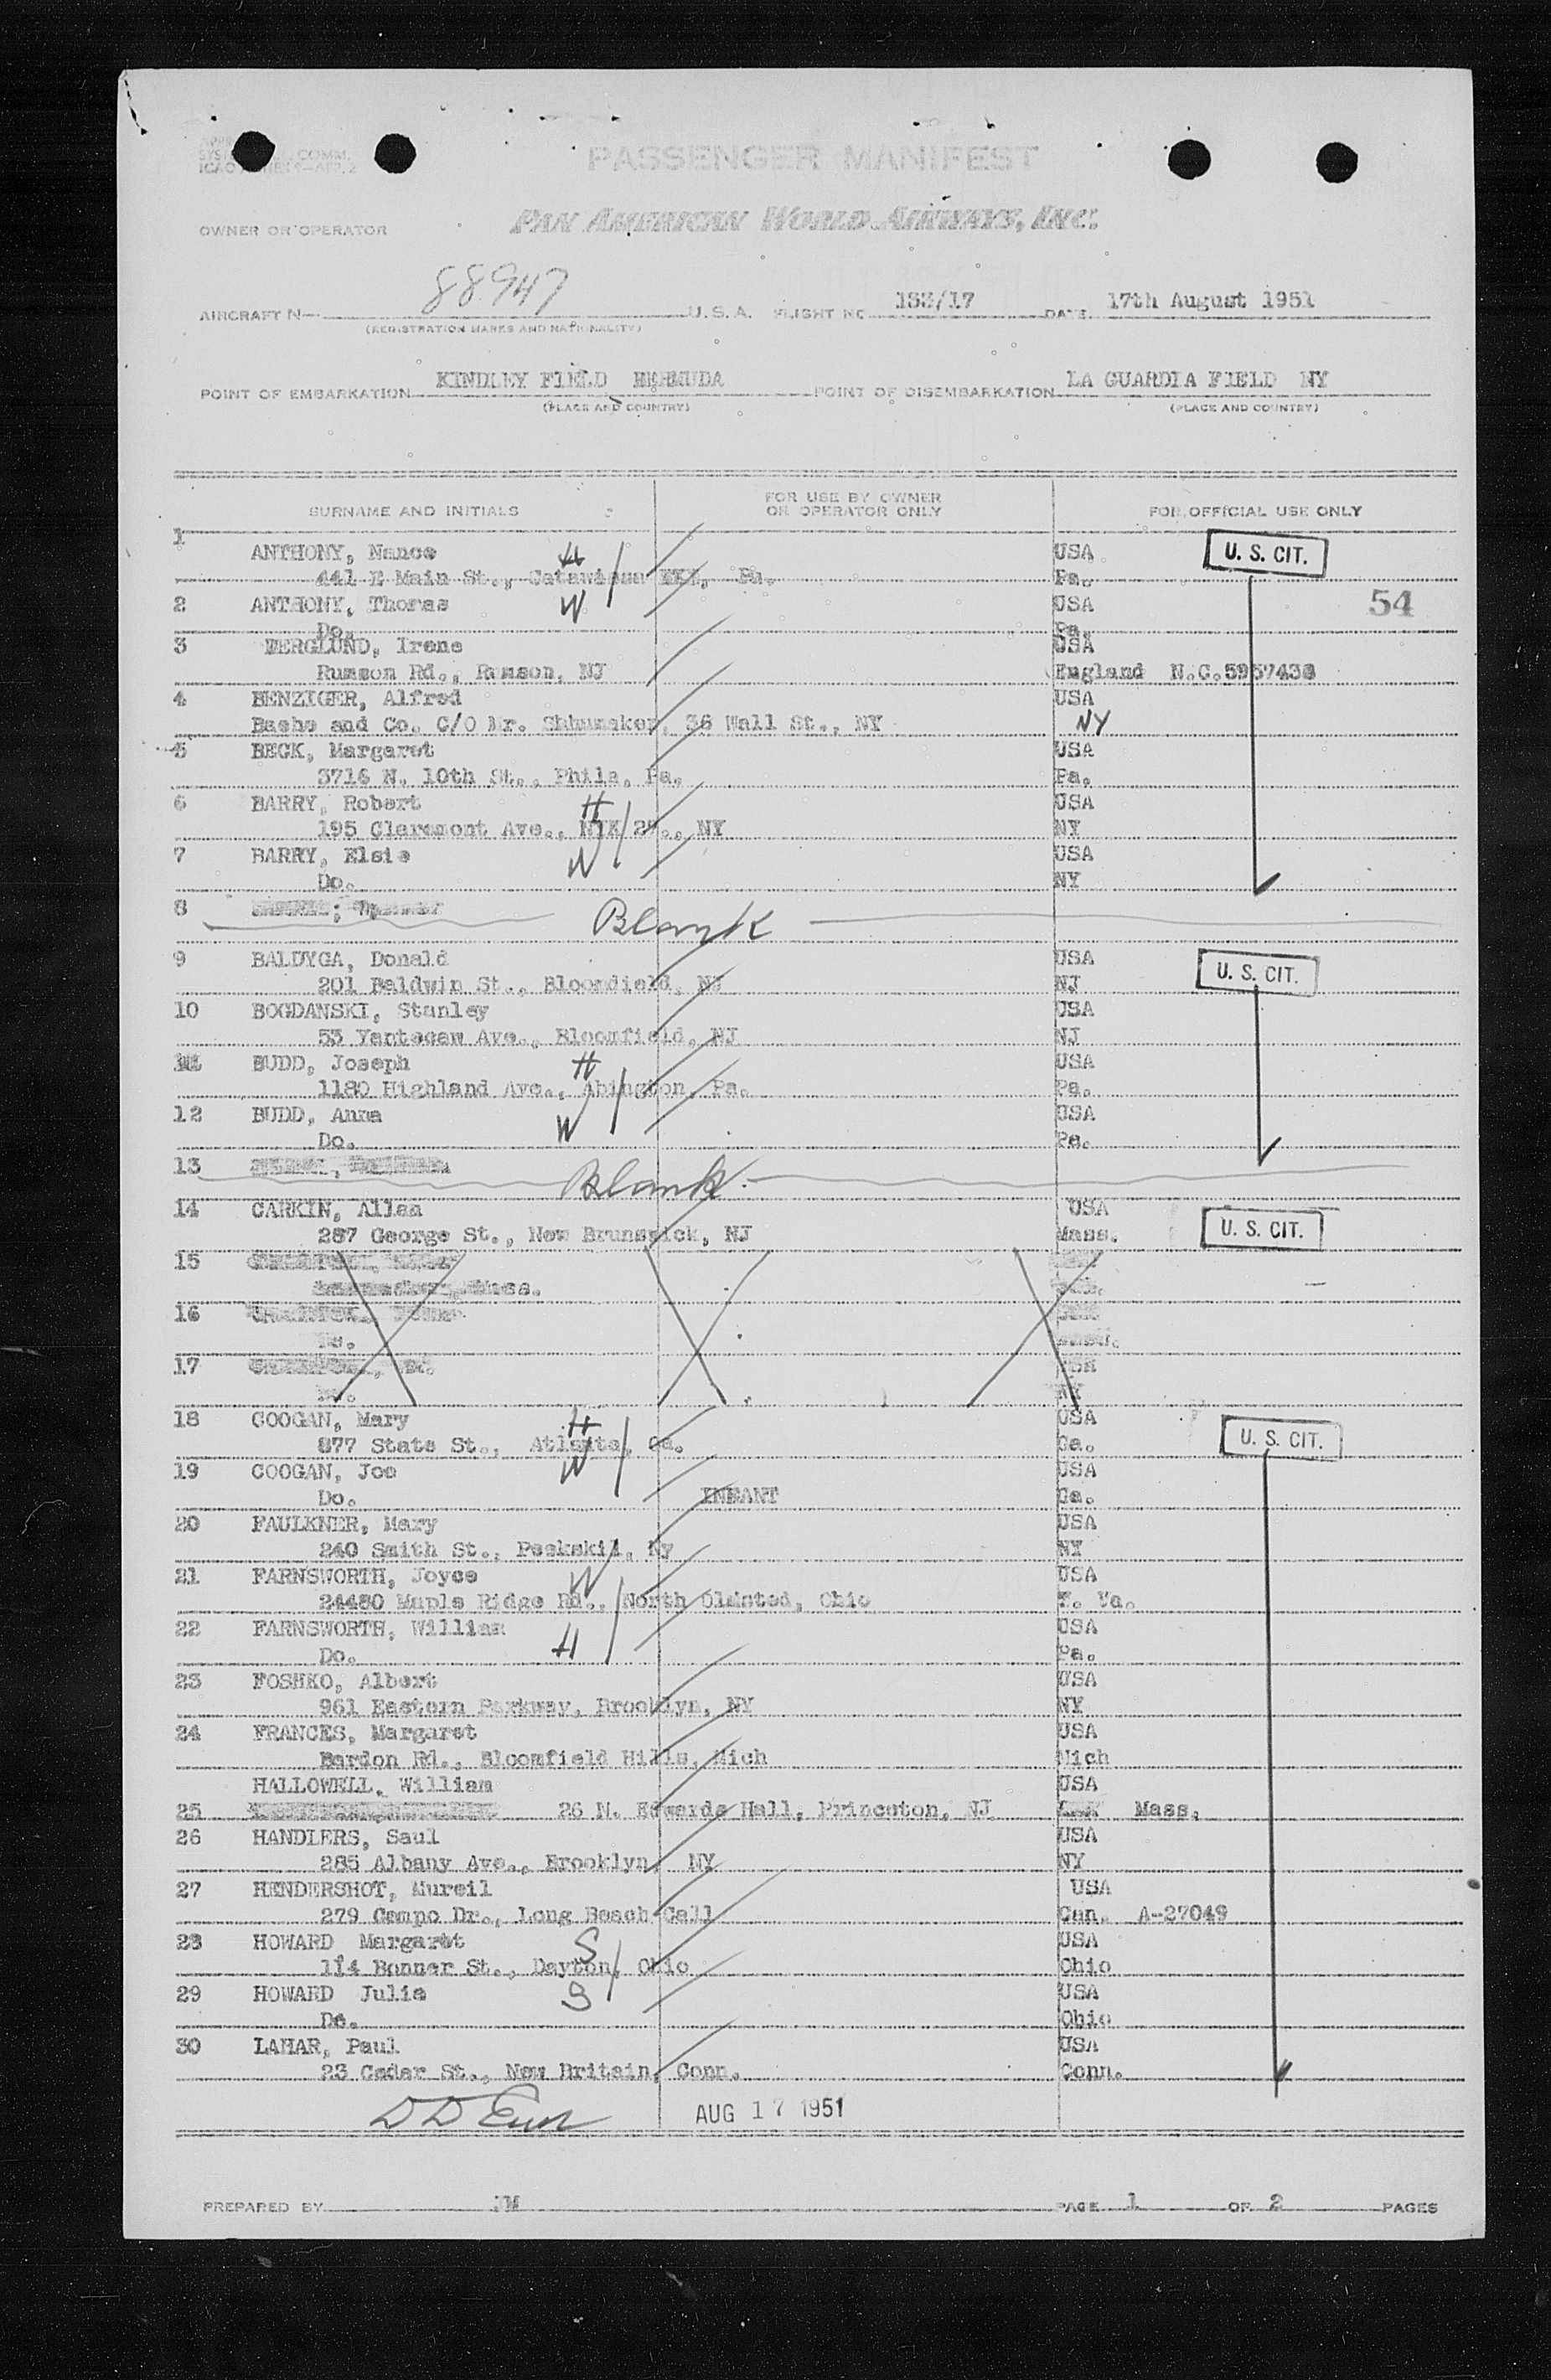 PASSENGER MANIFEST
PAN AMERICAN WORLD AIRWAYS, INC.
OWNER OR OPERATOR
AIRCRAFT N— 88947 U.S.A. FLIGHT NO DATE 17th August 1951
(REGISTRATION MARKS AND NATIONALITY)
POINT OF EMBARKATION KINDLEY FIELD BERMUDA POINT OF DISEMBARKATION LA GUARDIA FIELD NY
(PLACE AND COUNTRY) (PLACE AND COUNTRY)
SURNAME AND INITIALS FOR USE BY OWNER OR OPERATOR ONLY FOR OFFICIAL USE ONLY
1 ANTHONY, Nance H USA U. S. CIT.
441 E Main St., Pa. Pa.
2 ANTHONY, Thomas W USA 54
Do. Pa.
3 Irene USA
Rumson Rd., Rumson, NJ England N.C.
4 BENZIGER, Alfred USA
Bache and Co. C/O Mr. 36 Wall St., NY NY
5 BECK, Margaret USA
3716 N. 10th St., Phila, Pa. Pa.
6 BARRY, Robert H USA
195 Claremont Ave., NY NY
7 BARRY, Elsie W USA
Do. NY
8 Blank
9 BALDYGA, Donald USA U. S. CIT.
201 Baldwin St., Bloomfield, NJ NJ
10 BOGDANSKI, Stanley USA
53 Ave., Bloomfield, NJ NJ
11 BUDD, Joseph H USA
1180 Highland Ave., Abington, Pa. Pa.
12 BUDD, Anna W USA
Do. Pa.
13 Blank
14 CARKIN, Allan USA
287 George St., New Brunswick, NJ Mass. U. S. CIT.
15
Mass.
16
Do.
17
18 COOGAN, Mary H USA
877 State St., Atlanta, Ga. Ga. U. S. CIT.
19 COOGAN, Joe W USA
Do. INFANT Ga.
20 FAULKNER, Mary USA
240 Smith St., Peekskil, Ny NY
21 FARNSWORTH, Joyce W USA
24480 Maple Ridge Rd., North Olmsted, Ohio W. Va.
22 FARNSWORTH, William USA
Do. H Pa.
23 FOSHKO, Albert USA
961 Eastern Parkway, Brooklyn, NY NY
24 FRANCES, Margaret USA
Bardon Rd., Bloomfield Hills, Mich Mich
HALLOWELL, William USA
25 26 N. Edwards Hall, Princeton, NJ Mass.
26 HANDLERS, Saul USA
285 Albany Ave., Brooklyn, NY NY
27 HENDERSHOT, Mureil USA
279 Campo Dr., Long Beach Call Can. A-27049
28 HOWARD Margaret S USA
114 Bonner St., Dayton, Ohio Ohio
29 HOWARD Julia S USA
Do. Ohio
30 LAHAR, Paul USA
23 Cedar St., New Britain, Conn. Conn.
AUG 17 1951
PREPARED BY PAGE 1 OF 2 PAGES